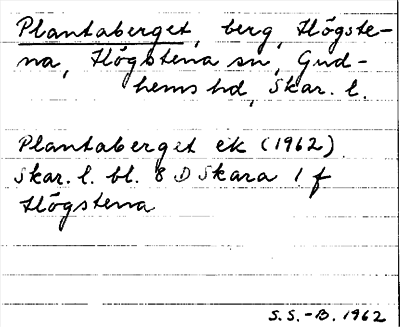 Plantaberget, berg, Högste-
na, Högstena sn, Gud-
hems hd, Skar. l.
Plantaberget ek (1962)
Skar. l. bl. 8 D Skara 1 f
Högstena
S.S.-B. 1962